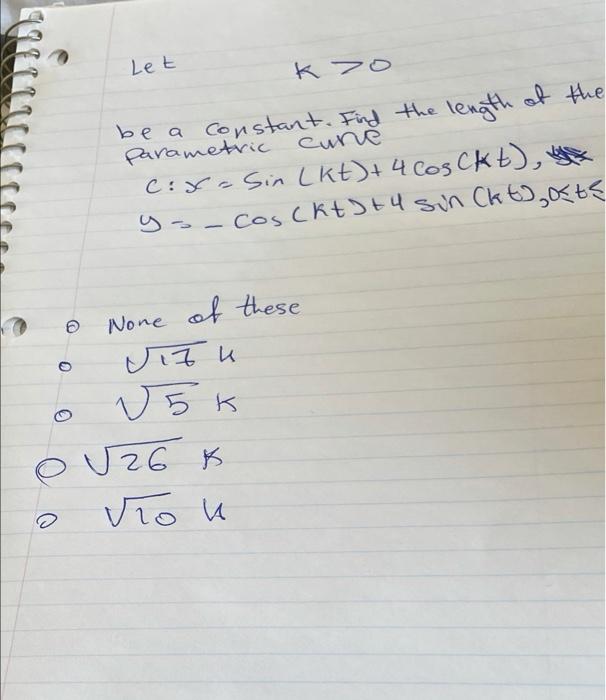 Let k > 0
be a constant. Find the length of the
parametric curve
C: x = Sin (kt) + 4 cos (kt),
y = - cos (kt) + 4 sin (kt), 0≤t≤
None of these
√17 k
√5 k
√26 k
√10 k